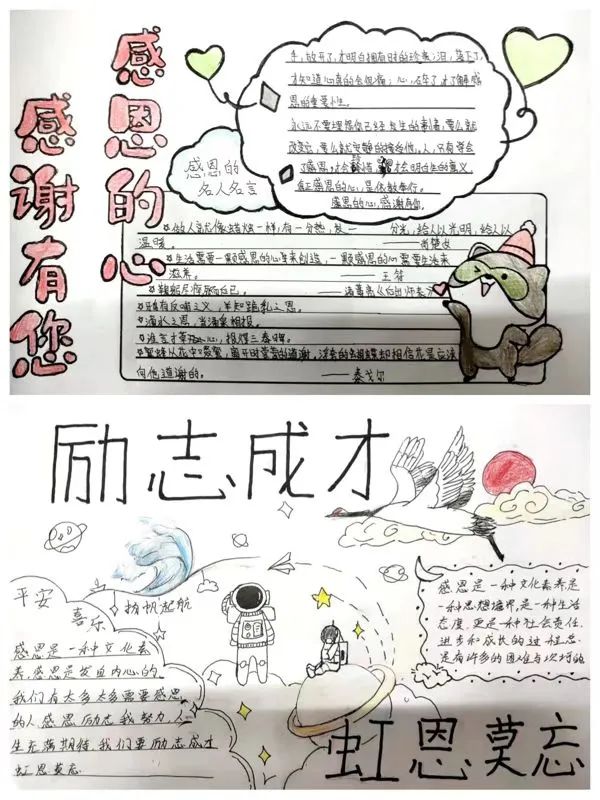 感恩的心
感谢有您
手,放开了,才明白拥有时的珍贵;泪,落下了,
才知道心真的会很痛;心,碎了,才了解感
恩的重要性。
永远不要埋怨你已经发生的事情,要么就
改变它,要么就安静的接受他,人,只有学会
了感恩,才会
才会明白生的意义。
真正感恩的心,是依教奉行。
感恩的心,感谢有你。
感恩的
名人名言
做人就像蜡烛一样,有一分热,发一分光,给人以光明,给人以
温暖。——肖楚女
生活需要一颗感恩的心来创造,一颗感恩的心需要生活来
滋养。——王符
鞠躬尽瘁,死而后已。——诸葛亮《后出师表》
鸦有反哺之义,羊知跪乳之恩。
滴水之恩,当涌泉相报。
谁言寸草心,报得三春晖。
蜜蜂从花中啜蜜,离开时营营的道谢,浮夸的蝴蝶却相信花是应该
向他道谢的。——泰戈尔
励志成才
平安
喜乐
扬帆起航
感恩是一种文化素
养,感恩是发自内心的。
我们有太多太多需要感恩
的人感恩励志我努力,人
生充满期待,我们要励志成才
虹恩莫忘
感恩是一种文化素养,是
一种思想境界,是一种生活
态度,更是一种社会责任,
进步和成长的过程总
是有许多的困难与坎坷的
虹恩莫忘